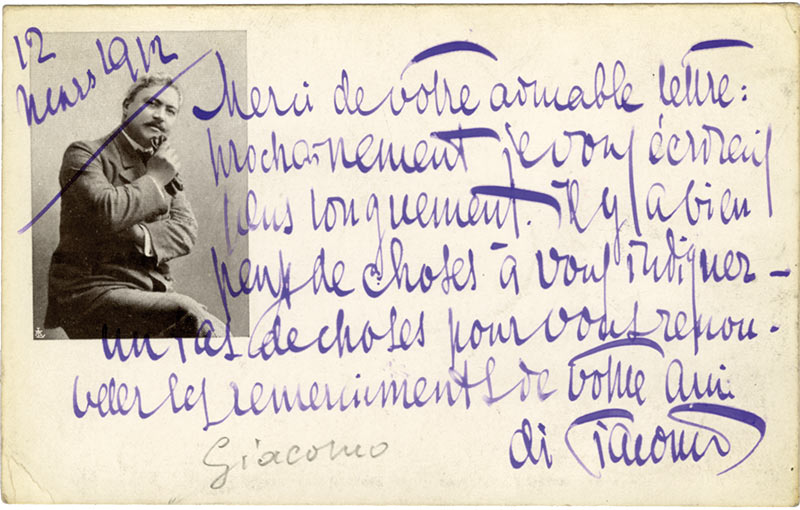 12
Mars 1912
Merci de votre aimable lettre:
prochainement je vous écrirai
plus longuement. Il y a bien
peu de choses à vous indiquer –
un tas de choses pour vous renou-
veler les remerciments de votre ami
di Giacomo
Giacomo